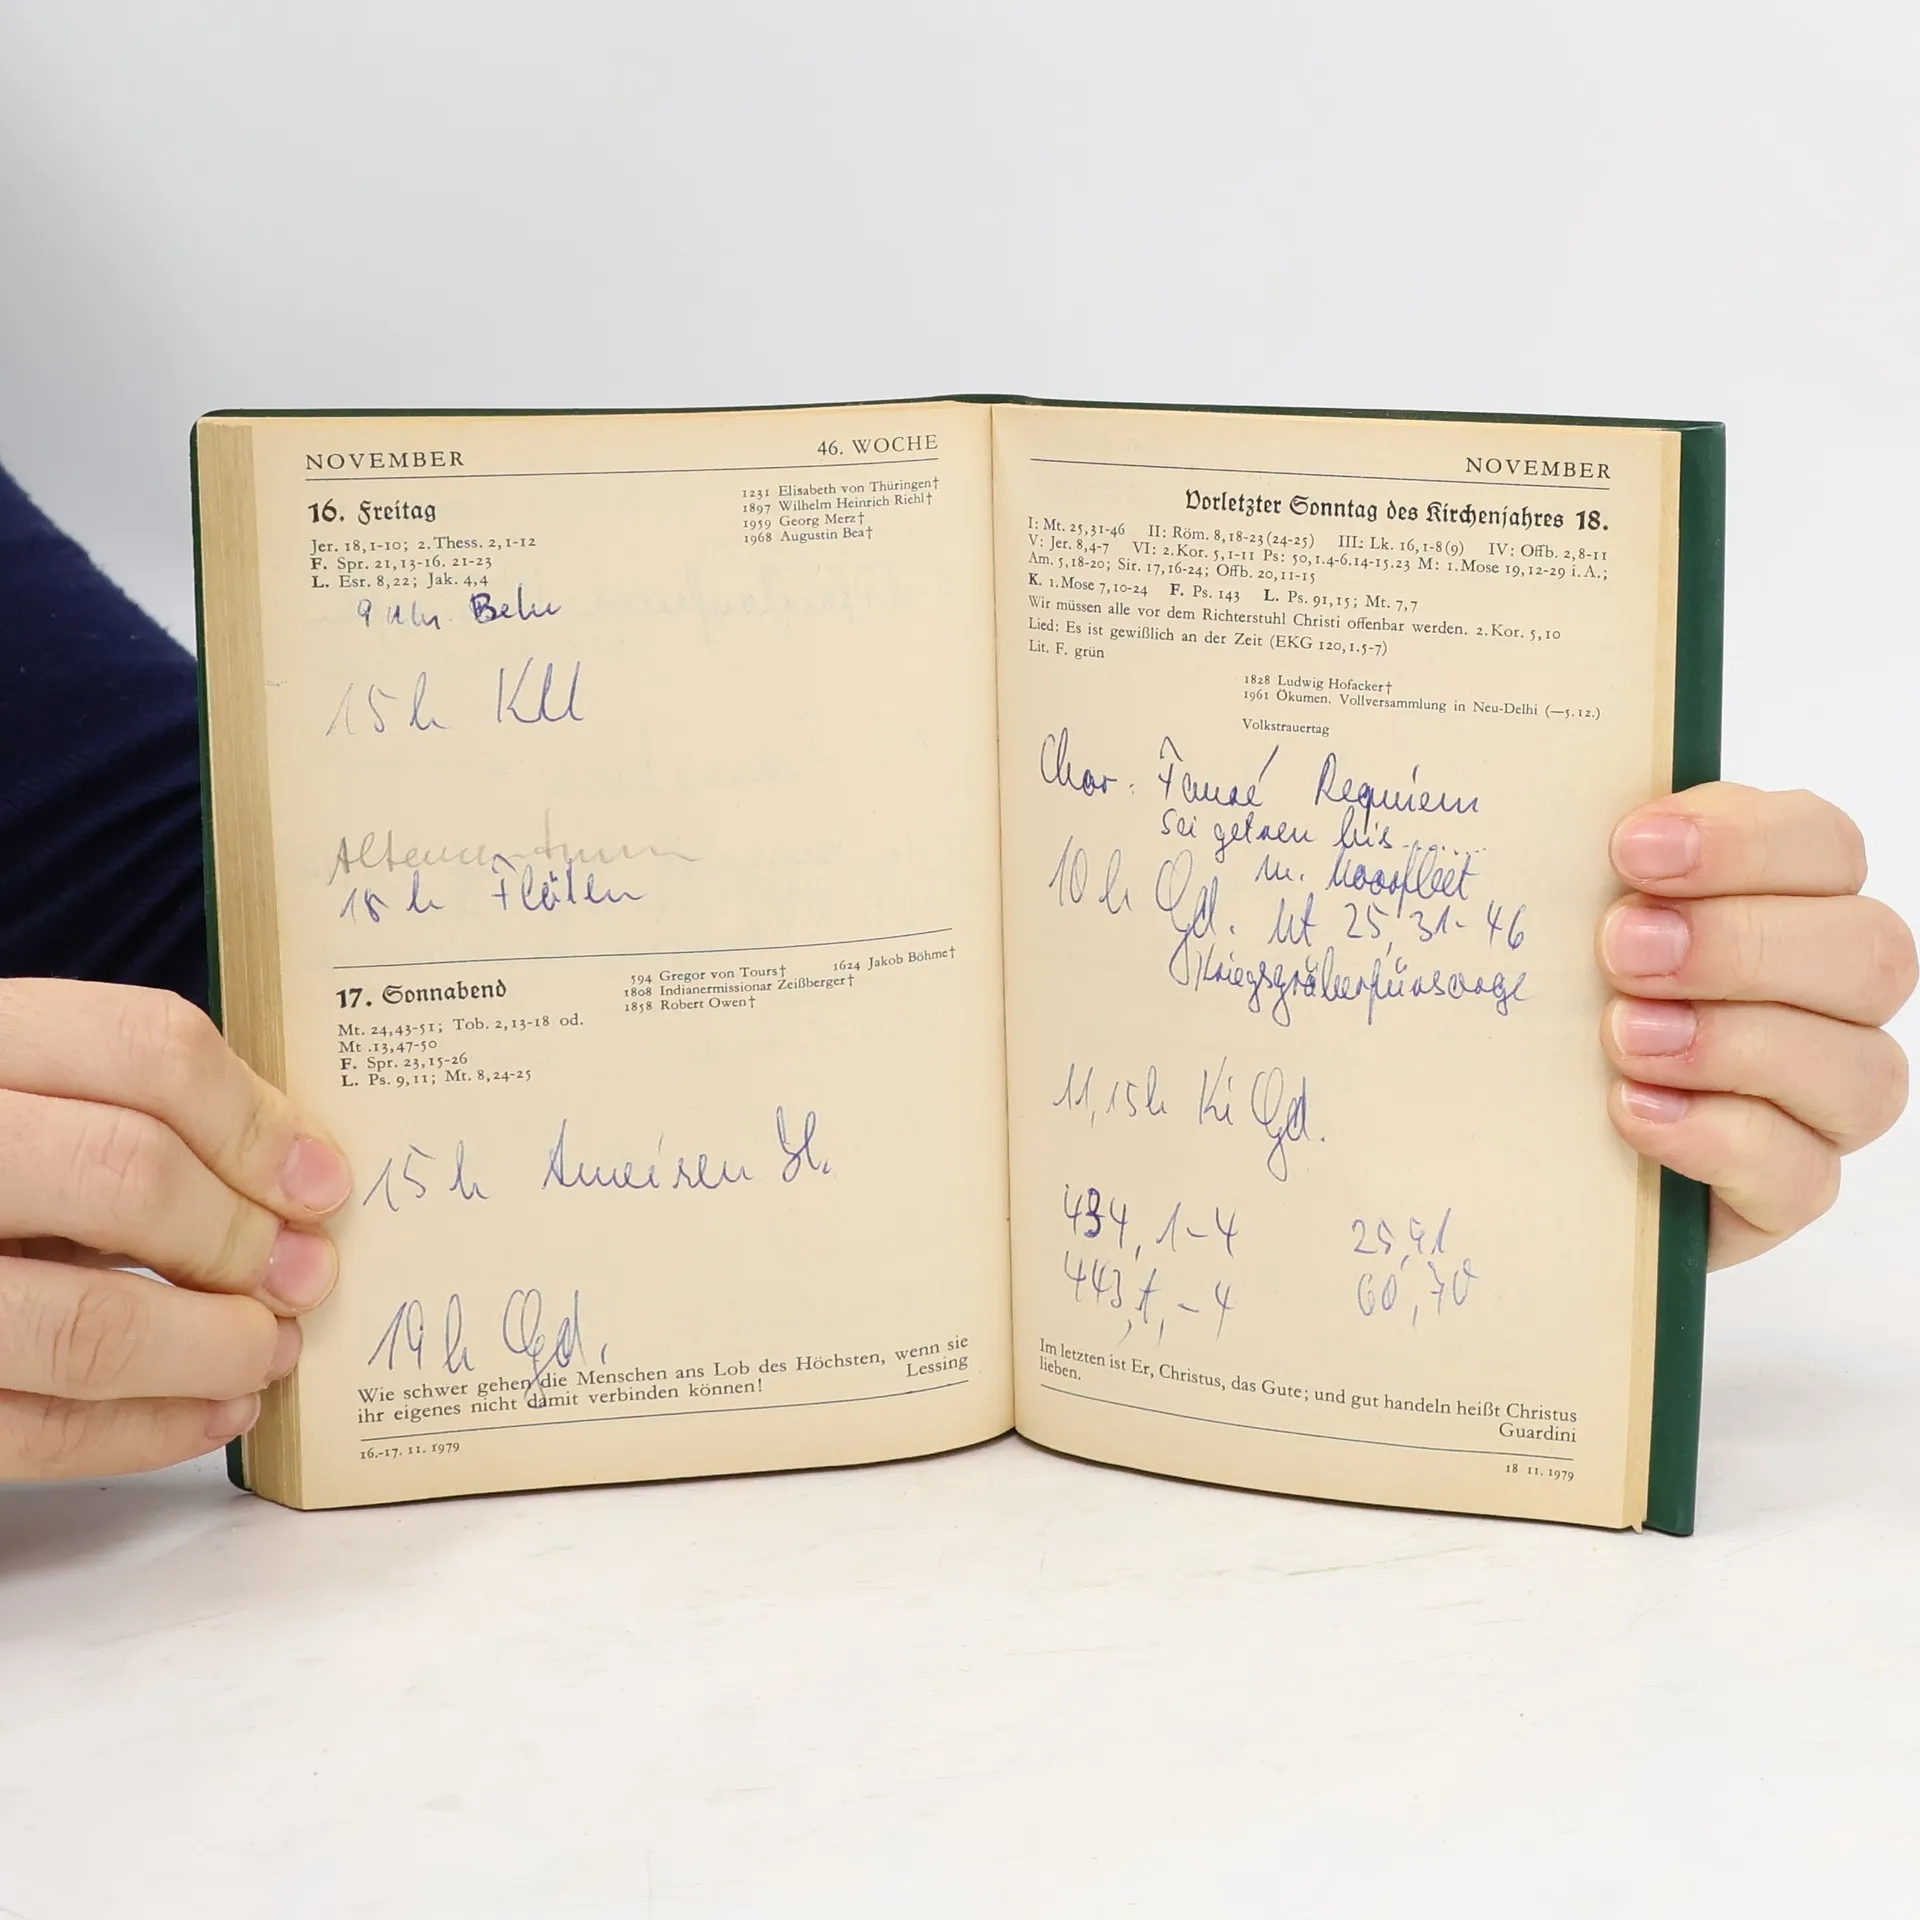 NOVEMBER 46. WOCHE
16. Freitag
1231 Elisabeth von Thüringen†
1897 Wilhelm Heinrich Riehl†
1959 Georg Merz†
1968 Augustin Bea†
Jer. 18,1-10; 2. Thess. 2,1-12
F. Spr. 21,13-16. 21-23
L. Esr. 8,22; Jak. 4,4
9 Uhr
15 h KU
18 h Flöten
17. Sonnabend
594 Gregor von Tours† 1624 Jakob Böhme†
1808 Indianermissionar Zeißberger†
1858 Robert Owen†
Mt. 24,43-51; Tob. 2,13-18 od.
Mt .13,47-50
F. Spr. 23,15-26
L. Ps. 9,11; Mt. 8,24-25
15 h Ameisen
19 h Gd.
Wie schwer gehen die Menschen ans Lob des Höchsten, wenn sie
ihr eigenes nicht damit verbinden können! Lessing
16.-17. 11. 1979
NOVEMBER
Vorletzter Sonntag des Kirchenjahres 18.
I: Mt. 25,31-46 II: Röm. 8,18-23 (24-25) III: Lk. 16,1-8(9) IV: Offb. 2,8-11
V: Jer. 8,4-7 VI: 2.Kor. 5,1-11 Ps: 50,1.4-6.14-15.23 M: 1.Mose 19,12-29 i.A.;
Am. 5,18-20; Sir. 17,16-24; Offb. 20,11-15
K. 1.Mose 7,10-24 F. Ps. 143 L. Ps. 91,15; Mt. 7,7
Wir müssen alle vor dem Richterstuhl Christi offenbar werden. 2.Kor. 5,10
Lied: Es ist gewißlich an der Zeit (EKG 120,1.5-7)
Lit. F. grün
1828 Ludwig Hofacker†
1961 Ökumen. Vollversammlung in Neu-Delhi (—5.12.)
Volkstrauertag
Chor: Fauré Requiem
Sei getreu bis......
10 h Gd. m. Moorfleet
Mt 25,31-46
Kriegsgräberfürsorge
11,15 h Ki Gd.
434, 1-4 25,91
443, 1, -4 60,70
Im letzten ist Er, Christus, das Gute; und gut handeln heißt Christus
lieben. Guardini
18 11. 1979